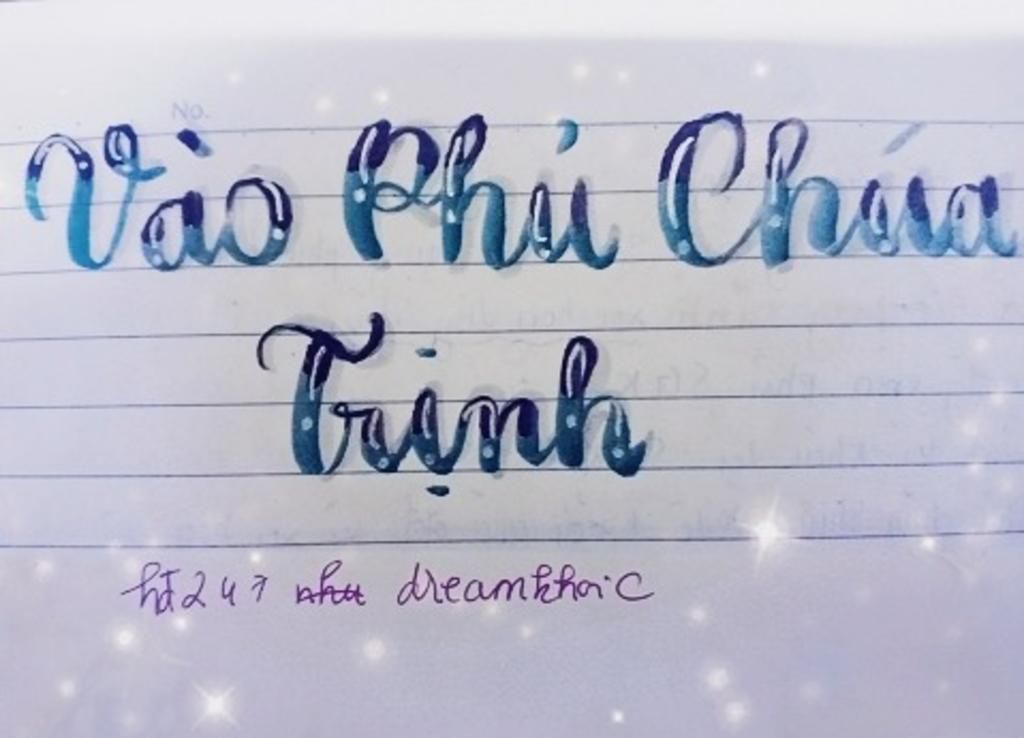 No.
Vào Phủ Chúa
Trịnh
hd247 dreamkhaiC